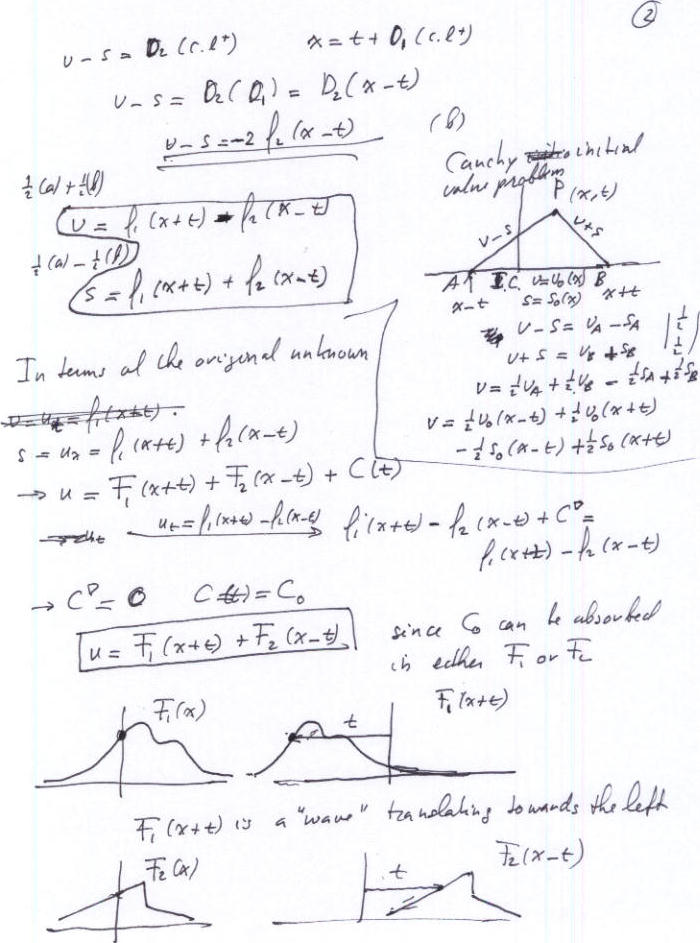 2
υ - s = D₂ (c.l⁺)    x = t + D₁ (c.l⁺)
υ - s = D₂ (D₁) = D₂ (x - t)
υ - s = -2 f₂ (x - t)
½(a) + ½(b)
υ = f₁ (x+t) - f₂ (x - t)
½(a) - ½(b)
s = f₁ (x+t) + f₂ (x-t)
(b)
Cauchy initial
value problem
P (x,t)
υ - s    υ + s
A    I.C.    υ = υ₀(x)    B
x - t    s = s₀(x)    x + t
υ - s = υ_A - s_A    | ½ |
υ + s = υ_B + s_B    | ½ |
υ = ½υ_A + ½υ_B - ½s_A + ½s_B
υ = ½υ₀(x-t) + ½υ₀(x+t)
- ½ s₀(x-t) + ½ s₀(x+t)
In terms of the original unknown
s = u_x = f₁ (x+t) + f₂(x-t)
→ u = F₁ (x+t) + F₂ (x-t) + C(t)
u_t = f₁(x+t) - f₂(x-t)    f₁(x+t) - f₂(x-t) + C' =
f₁(x+t) - f₂(x-t)
→ C' = 0    C(t) = C₀
u = F₁ (x+t) + F₂ (x-t)
since C₀ can be absorbed
in either F₁ or F₂
F₁(x)    t    F₁(x+t)
F₁(x+t) is a "wave" translating towards the left
F₂(x)    t    F₂(x-t)